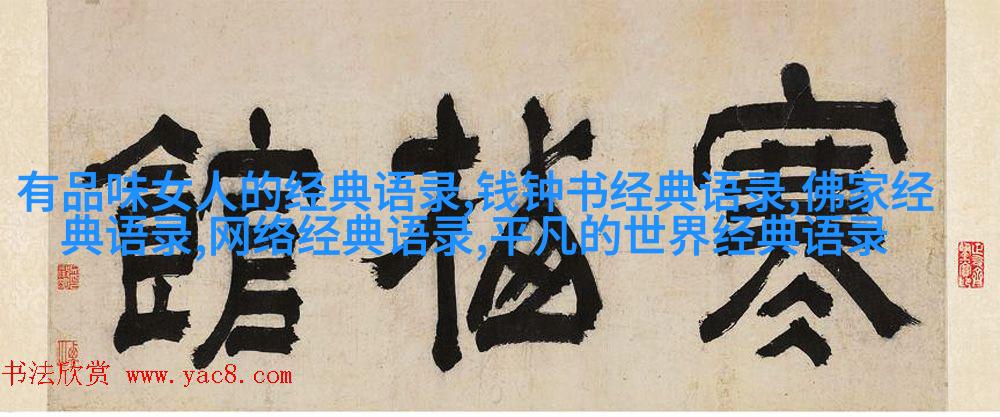 寒梅館
有品味女人的经典语录,钱钟书经典语录,佛家经
典语录,网络经典语录,平凡的世界经典语录
书法欣赏 www.yac8.com